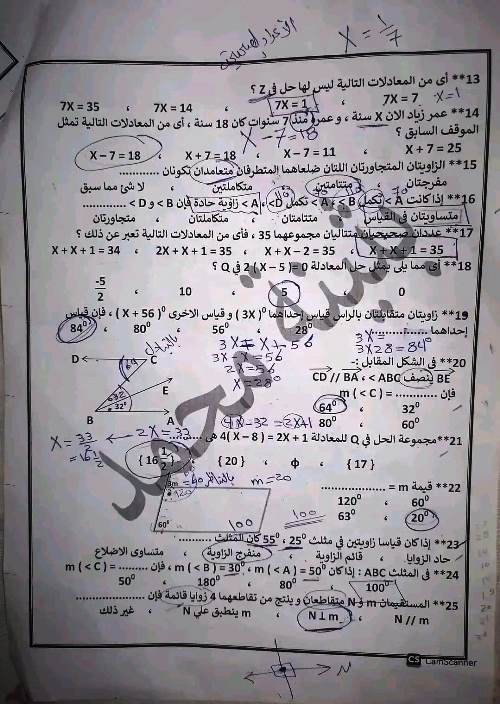 الأعداد الصحيحة
X = 1/7
13** أى من المعادلات التالية ليس لها حل فى Z ؟
7X = 7 ، 7X = 1 ، 7X = 14 ، 7X = 35
X=1
14** عمر زياد الان X سنة ، و عمره منذ 7 سنوات كان 18 سنة ، أى من المعادلات التالية تمثل
الموقف السابق ؟
X - 7 = 18
X + 7 = 25 ، X – 7 = 11 ، X + 7 = 18 ، X – 7 = 18
15** الزاويتان المتجاورتان اللتان ضلعاهما المتطرفان متعامدان تكونان ............
مفرجتان ، متتامتين ، متكاملتين ، لا شئ مما سبق
16** إذا كانت A > تكمل B > ، A > تكمل D > ، A > زاوية حادة فإن B > و D > ............
متساويتان فى القياس ، متتامتان ، متكاملتان ، متجاورتان
17** عددان صحيحيان متتاليان مجموعهما 35 ، فأى من المعادلات التالية تعبر عن ذلك ؟
X + X + 1 = 35 ، X + X – 2 = 35 ، 2X + X + 1 = 35 ، X + X + 1 = 34
18** أى مما يلى يمثل حل المعادلة 2 ( X – 5 ) = 0 فى Q ؟
0 ، 5 ، 10 ، -5/2
19** زاويتان متقابلتان بالراس قياس إحداهما ( 3X )⁰ و قياس الاخرى ( X + 56 )⁰ ، فإن قياس
إحداهما ..................
28⁰ ، 56⁰ ، 80⁰ ، 84⁰
3X = X + 56
3X - X = 56
2X = 56
X = 28⁰
3X =
3X28 = 84⁰
بالتبادل
D C
64
E
32
32⁰
B A
20** فى الشكل المقابل :-
CD // BA ، < ABC ينصف BE
فإن m ( < C ) = ............
32⁰ ، 64⁰
60⁰ ، 80⁰
4X - 32 = 2X+1
2X = 33
X = 33/2
= 16 1/2
21** مجموعة الحل في Q للمعادلة 4( X – 8 ) = 2X + 1 هى ............
{ 17 } ، ϕ ، { 20 } ، { 16 1/2 }
m = 20
3m
120
60⁰
100
100
22** قيمة m = ..................
60⁰ ، 120⁰
20⁰ ، 63⁰
23** إذا كان قياسا زاويتين في مثلث 25⁰ ، 55⁰ كان المثلث ............
حاد الزوايا ، قائم الزاوية ، منفرج الزاوية ، متساوى الاضلاع
24** فى المثلث ABC : إذا كان m ( < A ) = 50⁰ ، m ( < B ) = 30⁰ ، فإن m ( < C ) = ............
100⁰ ، 80⁰ ، 180⁰ ، 50⁰
25** المستقيمان m و N متقاطعان و ينتج من تقاطعهما 4 زوايا قائمة فإن ..................
N // m ، N ⊥ m ، m ينطبق علي N ، غير ذلك
N
CS CamScanner